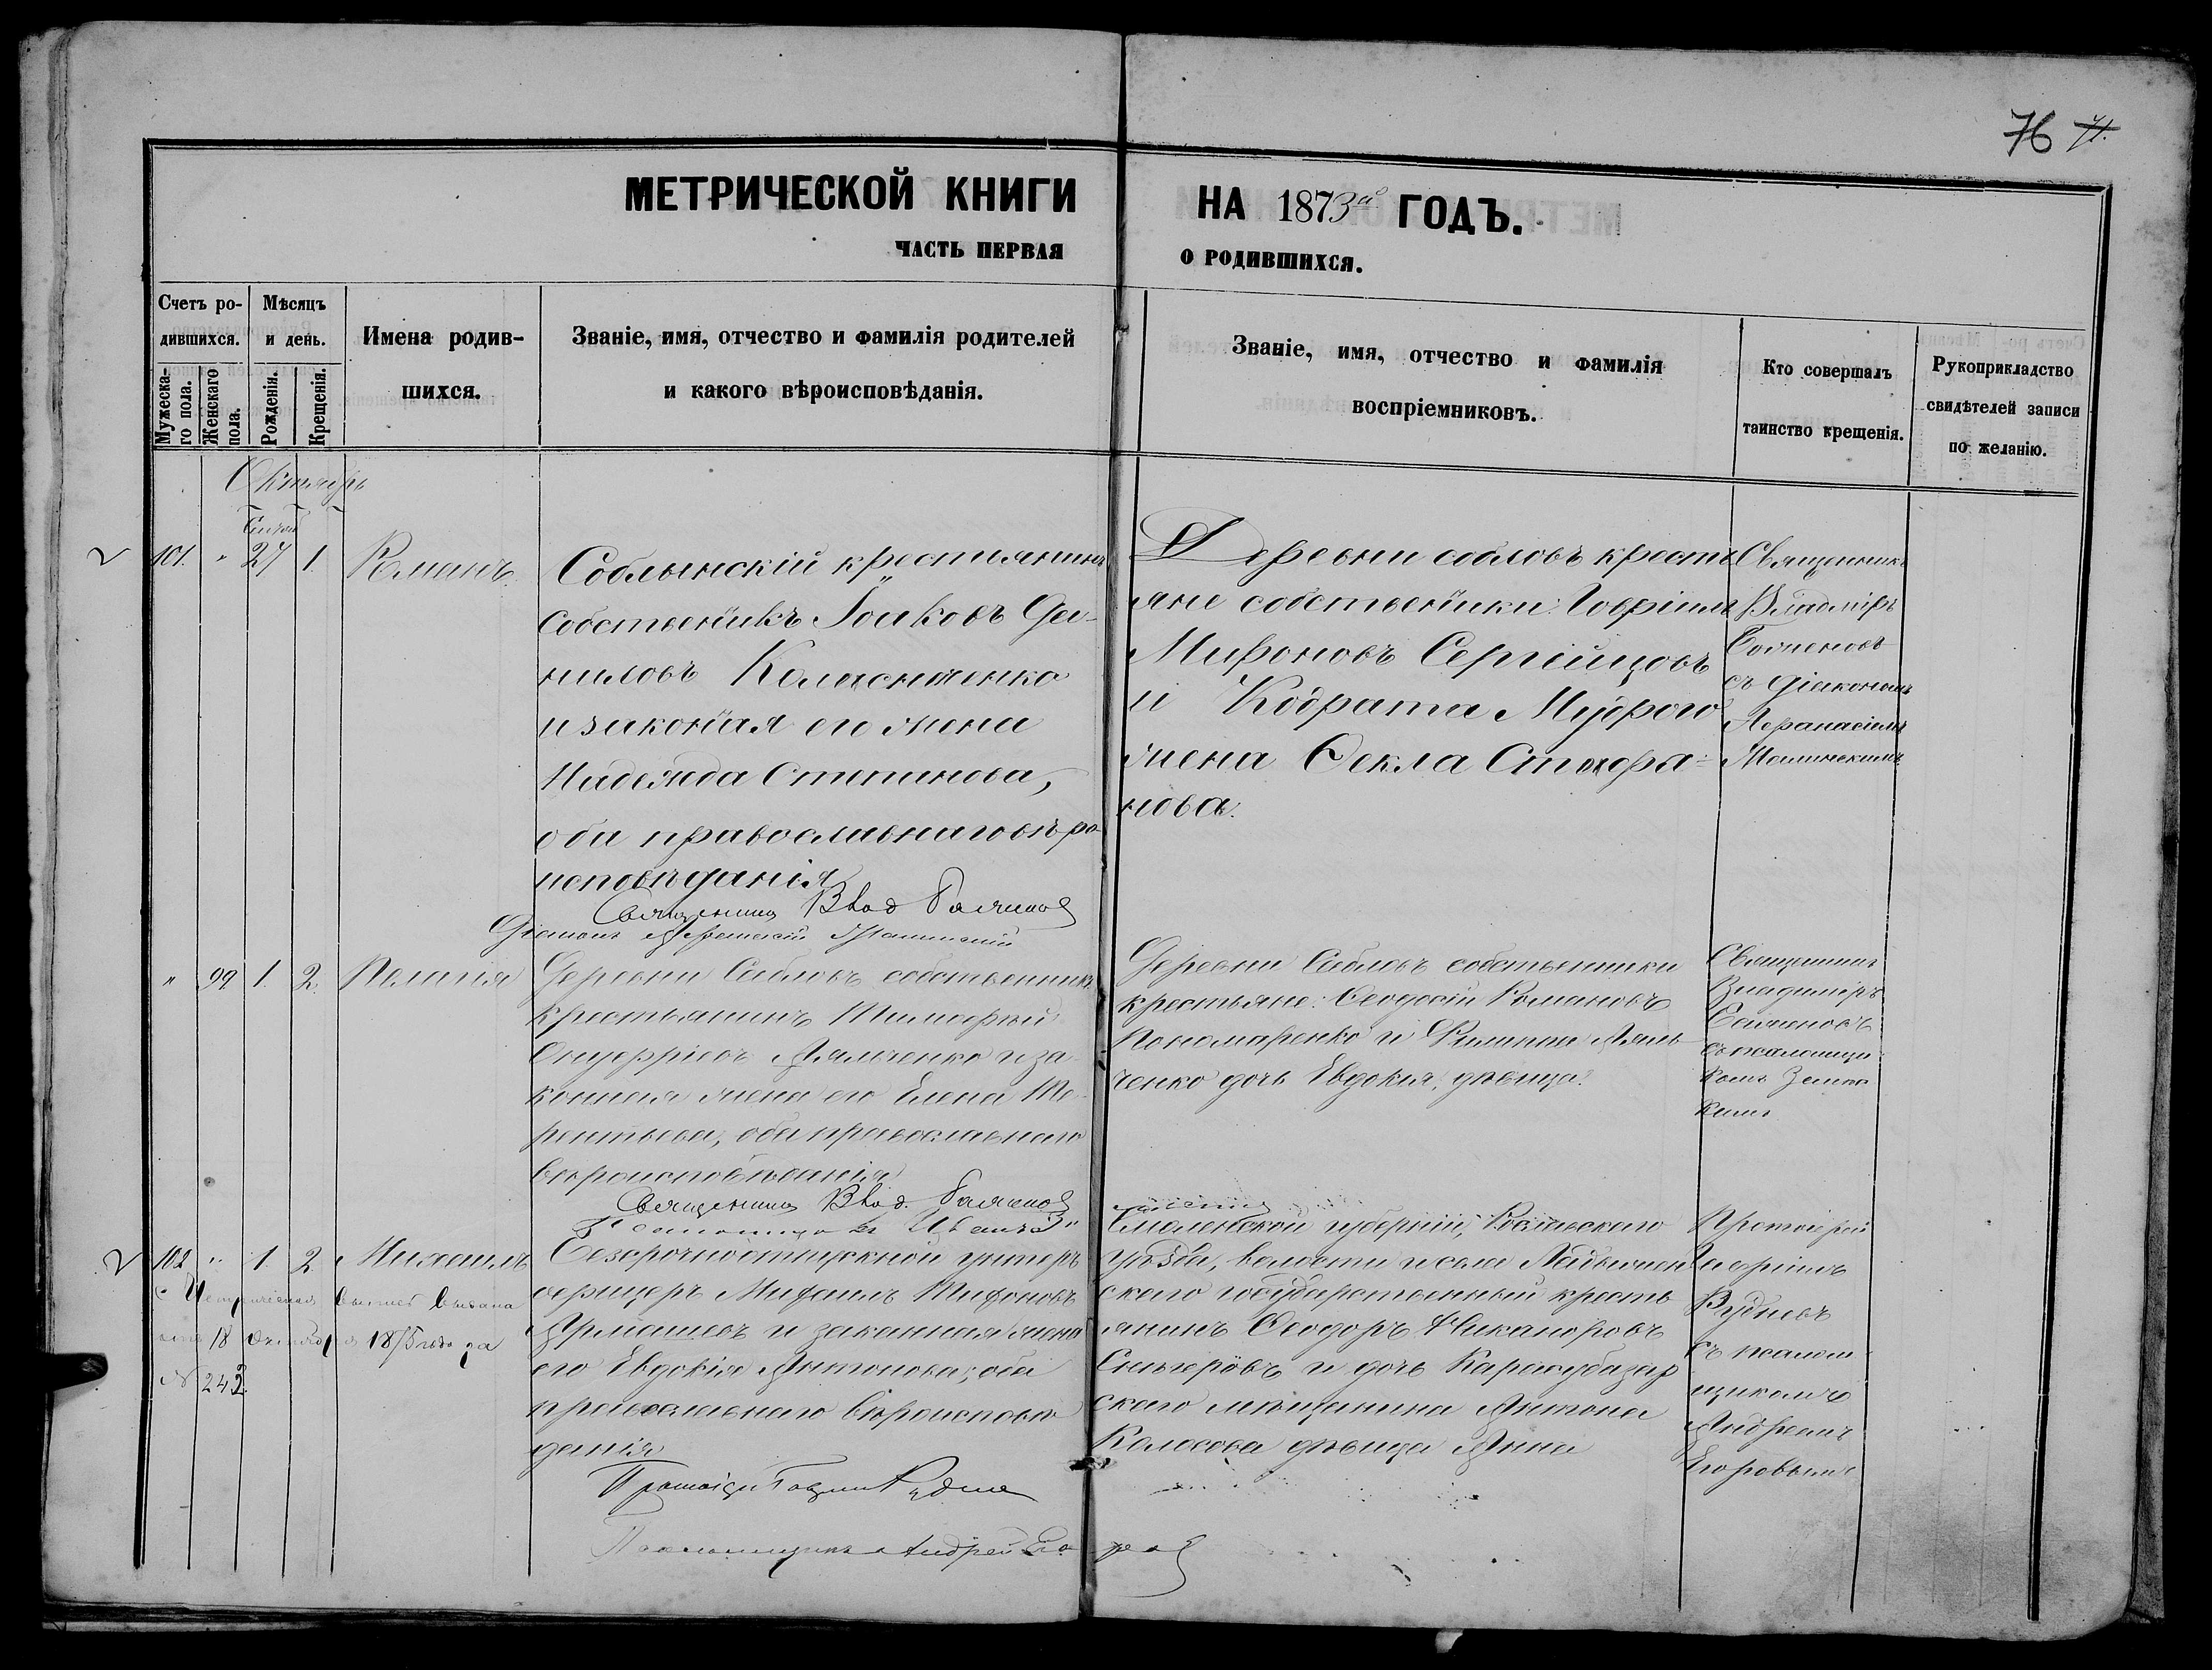 76 71.
МЕТРИЧЕСКОЙ КНИГИ НА 1873й ГОДЪ.
ЧАСТЬ ПЕРВАЯ О РОДИВШИХСЯ.
Счетъ ро-
дившихся.
Мужеска-
го пола.
Женскаго
пола.
Мѣсяцъ
и день.
Рожденія.
Крещенія.
Имена родив-
шихся.
Званіе, имя, отчество и фамилія родителей
и какого вѣроисповѣданія.
Званіе, имя, отчество и фамилія
воспріемниковъ.
Кто совершалъ
таинство крещенія.
Рукоприкладство
свидѣтелей записи
по желанію.
Октябрь
101. " 27 1.
Романъ.
Соблынскій крестьянинъ
собственникъ Іоаковъ Да-
ниловъ
и законная его жена
Надежда Степанова,
оба православнаго вѣро-
исповѣданія
Священникъ Влад
Діаконъ
Деревни Собловъ кресть
яне собственники: Гавріилъ
Мироновъ
и Кодрата Мудрого
жена Ѳекла Стафа=
нова.
Священникъ
Владміръ
съ Діакономъ
Аѳанасіемъ
" 99 1. 2.
Пелагія
Деревни Сабловъ собственникъ
крестьянинъ Тимоѳей
Онуфріевъ Дяльченко и за-
конная жена его Елена Те-
рентьева, оба православнаго
вѣроисповѣданія
Священникъ Влад.
Деревни Сабловъ собственники
крестьяне: Ѳеодосій Романовъ
Пономаренко и Филиппа Дяль
ченко дочь Евдокія, дѣвица.
Священникъ
Владиміръ
съ псаломщи
комъ
102 " 1. 2
Михаилъ
Безсрочноотпускной унтеръ
офицеръ Михаилъ Тифоновъ
Ярмашевъ и законная жена
его Евдокія Антонова; оба
православнаго вѣроисповѣ
данія
Смоленской губерніи, Рославскаго
уѣзда, волости и села
скаго государственный кресть
янинъ Ѳеодоръ Никаноровъ
и дочь Карасубазар
скаго мѣщанина Антона
Колосова дѣвица Анна
Протоіерей
Гавріилъ
Рудневъ
съ псалом
щикомъ
Андреемъ
Егоровымъ
18 октября 1875 года за
№ 242
Псаломщикъ Андрей Егоровъ